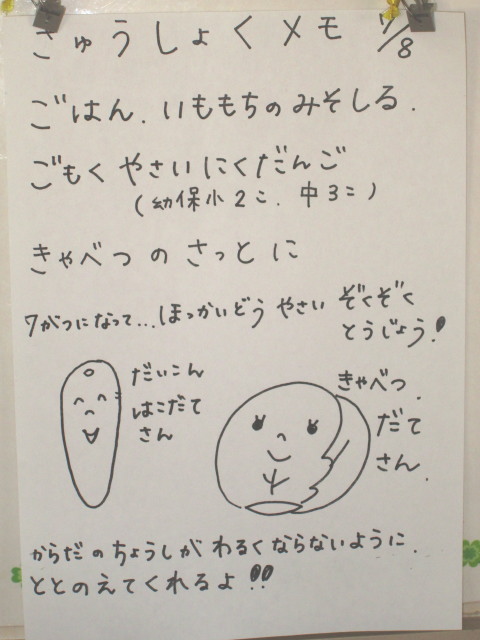 きゅうしょくメモ 7/8
ごはん.いももちのみそしる.
ごもくやさいにくだんご
(幼保小2こ.中3こ)
きゃべつのさっとに
7がつになって...ほっかいどうやさいぞくぞく
とうじょう!
だいこん
はこだて
さん
きゃべつ.
だて
さん.
からだのちょうしがわるくならないように.
ととのえてくれるよ!!